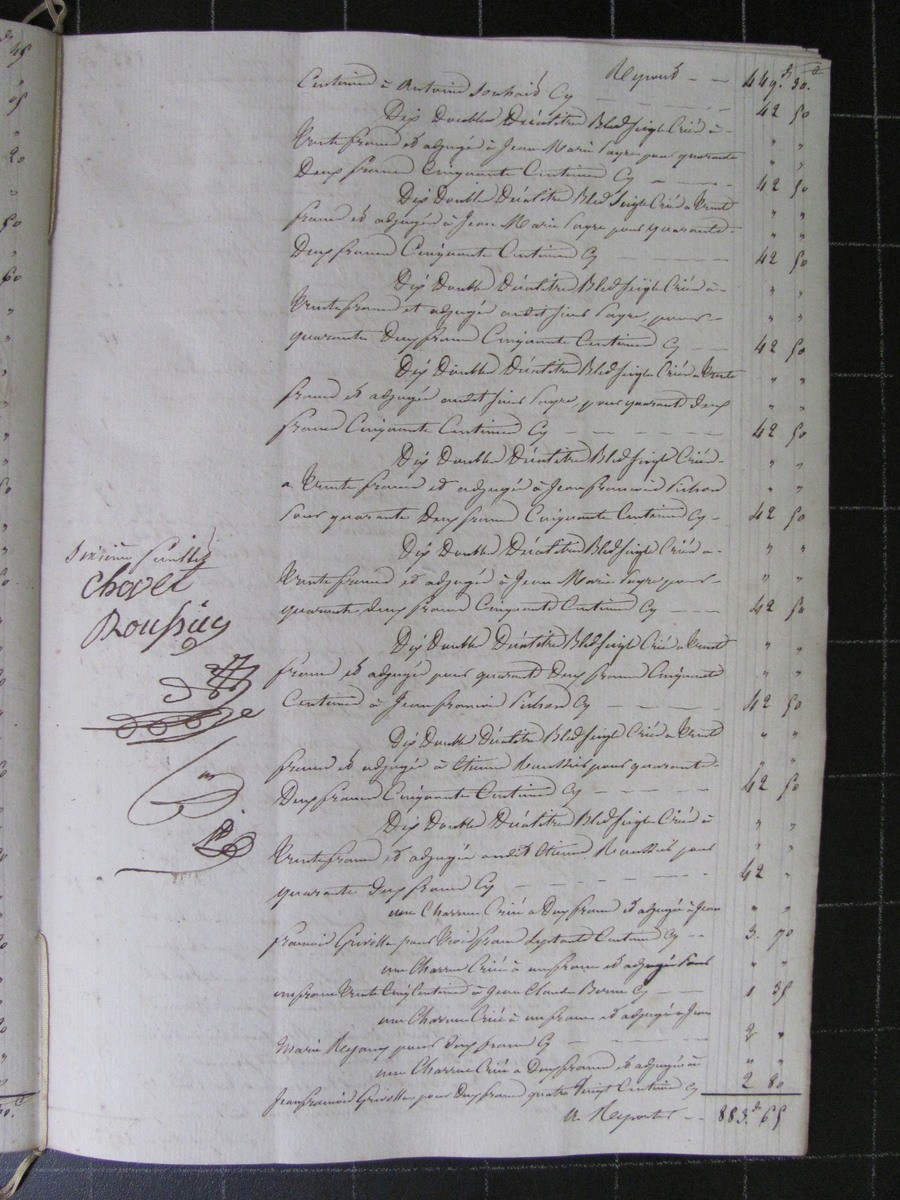 Report - - 449.f 30.c
Centimes à Antoine Souhait Cy - - - 42 50
Dix Doubles Décalitres Bled Seigle Criés à - " "
Trente francs et adjugés à Jean Marie Payre pour quarante " "
Deux francs Cinquante Centimes Cy - - - 42 50
Dix Doubles Décalitres Bled Seigle Criés à Trente " "
francs et adjugés à Jean Marie Payre pour quarante- " "
Deux francs Cinquante Centimes Cy - - - 42 50
Dix Doubles Décalitres Bled Seigle Criés à - " "
Trente francs et adjugés audit Sieur Payre, pour - " "
quarante Deux francs Cinquante Centimes Cy - - 42 50
Dix Doubles Décalitres Bled Seigle Criés à Trente " "
francs et adjugés audit Sieur Payre, pour quarante Deux " "
francs Cinquante Centimes Cy - - - 42 50
Dix Doubles Décalitres Bled Seigle Criés - " "
a Trente francs et adjugés à Jean François " "
Pour quarante Deux francs Cinquante Centimes Cy - 42 50
Dix Doubles Décalitres Bled Seigle Criés à - " "
Trente francs et adjugés à Jean Marie Payre pour - " "
quarante deux francs Cinquante Centimes Cy - - - 42 50
Dix Doubles Décalitres Bled Seigle Criés à Trente " "
francs et adjugés pour quarante Deux francs Cinquante " "
Centimes à Jean François Cy - - - 42 50
Dix Doubles Décalitres Bled Seigle Criés à Trente " "
francs et adjugés à Etienne pour quarante- " "
Deux francs Cinquante Centimes Cy - - - 42 50
Dix Doubles Décalitres Bled Seigle Criés à " "
Trente francs et adjugés audit Etienne pour " "
quarante Deux francs Cy - - - 42 "
une Charrue Criée à Deux francs et adjugée à Jean " "
François Grivolle pour Trois francs Septante Centimes Cy - - 3. 70
une Charrue Criée à un franc et adjugée Pour " "
un franc Trente Cinq Centimes à Jean Claude Cy - - 1 35
une Charrue Criée à un franc et adjugée à Jean " "
Marie pour Deux francs Cy - - - 2 "
une Charrue Criée à Deux francs et adjugée à " "
Jean François Grivolle pour Deux francs quatre Vingt Centimes Cy 2 80
A Reporter - - 883.f 65
feuillet
Chovet